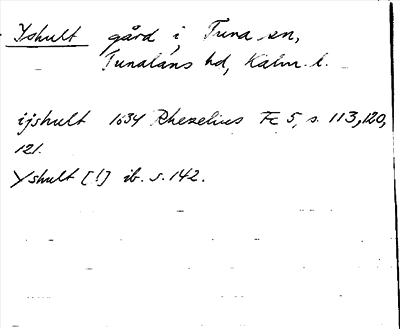 Yshult gård i Tuna sn,
Tunaläns hd, Kalm. l.
ijshult 1634 Rhezelius Fc 5, s. 113, 120,
121.
Yshult [!] ib. s. 142.